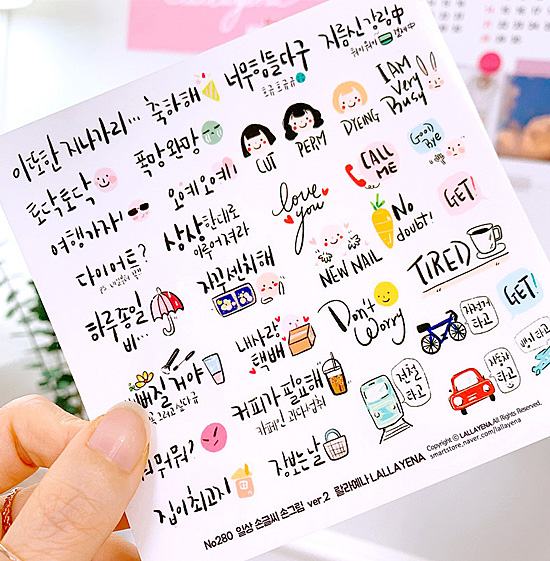 이또한 지나가리...
축하해
너무힘들다구
토금토금금
지름신 강림中
폭망완망
CUT
PERM
DYEING
I AM
Very
Busy
토닥토닥
오예오예!
love
you
CALL
ME
GOOD
Bye
여행가자!
상상한대로
이루어져라
NO
doubt!
GET!
다이어트?
자꾸선치해
NEW NAIL
TIRED
하루종일
비...
내사랑
택배
Don't
Worry
자전거
타고
GET!
빠질거야
커피가 필요해
카페인 과다섭취
전철
타고
자동차
타고
버스 타고
뭐뭐?
장보는날
집이최고지
Copyright © LALLAYENA.All Rights Reserved.
smartstore.naver.com/lallayena
No280 일상 손글씨 손그림 ver.2 랄라예나 LALLAYENA